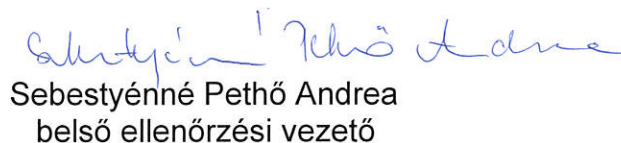 Sebestyénné Pethő Andrea
Sebestyénné Pethő Andrea
belső ellenőrzési vezető